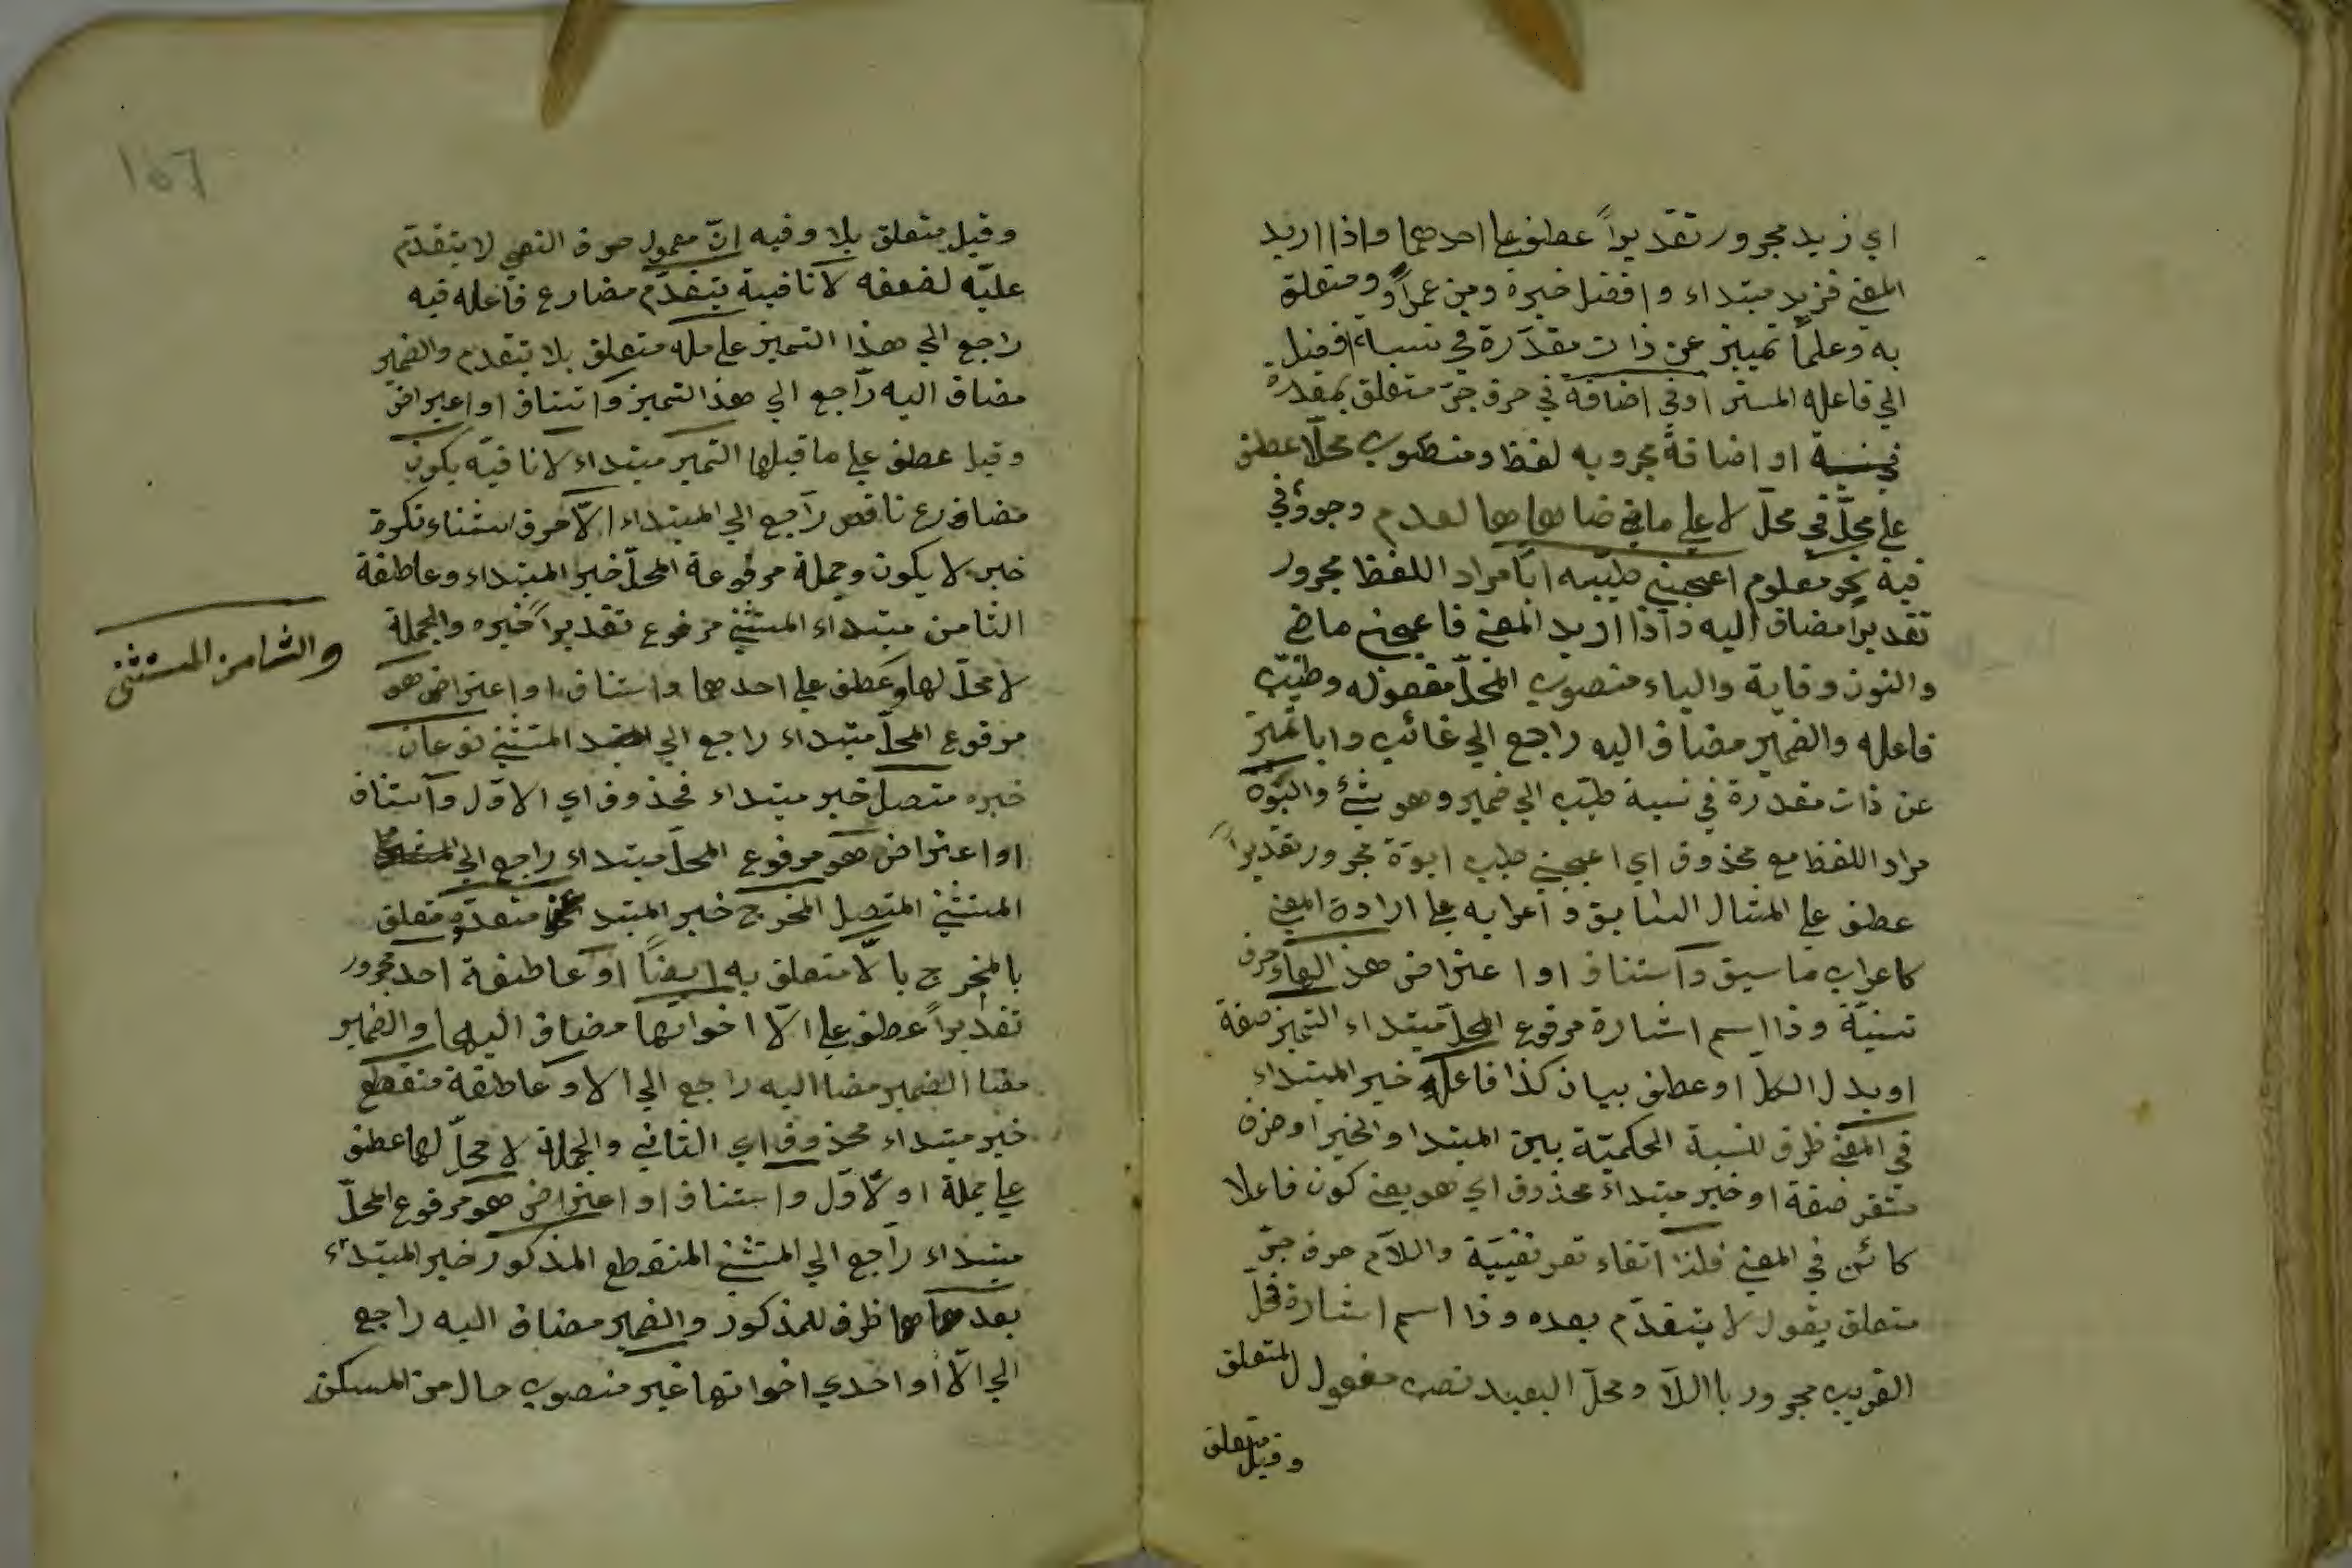 اي زيد مجرور تقديراً عطف علي احدهما واذا اريد
المعني فزيد مبتداء وافضل خبره ومن عمرو ومتعلق
به وعلماً تمييز عن ذات مقدّرة في نسباء افضل
الي فاعله المستتر اوفي اضافة في حرف جرّ متعلق بمقدرة
او اضافة مجرور به لفظا ومنصوب محلّا عطف
علي محلّ في محلّ لا علي ما في ضاهاهما لعدم وجود في
فيه نحو معلوم اعجبني طيبه ابا مراد اللفظ مجرور
تقديراً مضاف اليه واذا اريد المعني فاعجبني ماض
والنون وقاية والياء منصوب المحلّ مفعوله وطيب
فاعله والضمير مضاف اليه راجع الي غائب وابا تميز
عن ذات مقدرة في نسبة طيب الي ضمير وهو شئ وابوّة
مراد اللفظ مع محذوف اي اعجبني طيب ابوّة مجرور تقديراً
عطف علي المثال السابق واعرابه علي ارادة المعني
كاعراب ما سبق واستناف او اعتراض هذا الهاء حرف
تنبيّة وذا اسم اشارة مرفوع المحلّ مبتداء التميز صفة
او بدل الكلّ او عطف بيان كذا فاعله خبر المبتداء
في المعني ظرف للنسبة الحكميّة بين المبتدا والخبر او ظرف
مستقر صفة او خبر مبتداء محذوف اي هو يعني كون فاعلا
كائن في المعني فلذا الفاء تفريعيّة واللام حرف جرّ
متعلق بقول لا يتقدّم بعده وذا اسم اشارة محلّ
القريب مجرور باللا ومحلّ البعيد نصب مفعول لمتعلق
وقيل متعلق
١٥٦
وقيل متعلق بلا وفيه انّ معمول حرف النفي لا يتقدّم
عليّه لضعفه لا نافية يتقدّم مضارع فاعله فيه
راجع الي هذا التميز عامله متعلق بلا يتقدم والضمير
مضاف اليه راجع الي هذا التميز واستناف او اعتراض
وقيل عطف علي ما قبلها التميز مبتداء لا نافيّة يكون
مضارع ناقص راجع الي المبتداء الّا حرف استثناء نكرة
خبر لا يكون وجملة مرفوعة المحلّ خبر المبتداء وعاطفة
الثامن مبتداء المستثني مرفوع تقديراً خبره والجملة
والثامن المستثنى
لا محلّ لها وعطف علي احدهما واستناف او اعتراض هو
مرفوع المحلّ مبتداء راجع الي المستثني نوعان
خبره متصل خبر مبتداء محذوف اي الاوّل واستناف
او اعتراض هو مرفوع المحلّ مبتداء راجع الي
المستثني المتصل المخرج خبر المبتدا عن متعدّد متعلق
بالمخرج بالّا متعلق به ايضاً او عاطفة احد مجرور
تقديراً عطف علي الّا اخواتها مضاف اليها والضمير
مضا الضمير مضا اليه راجع الي الا و عاطفة منقطع
خبر مبتداء محذوف اي الثاني والجملة لا محلّ لها عطف
علي جملة اولّاول واستناف او اعتراض هو مرفوع المحلّ
مبتداء راجع الي المستثني المنقطع المذكور خبر المبتداء
بعدها ظرف للمذكور والضمير مضاف اليه راجع
الي الّا او احدي اخواتها غير منصوب حال من المسكن